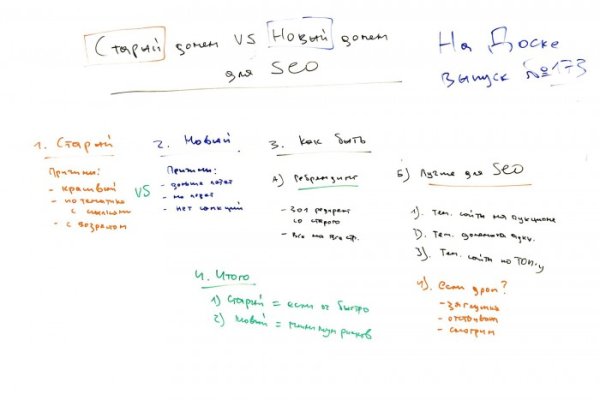 Старый домен VS Новый домен
для SEO
На Доске
выпуск №173
1. Старый
Причины:
- красивый
- по тематике
с ссылками
- с возрастом
VS
2. Новый
Причины:
- дольше
- не
- нет санкций
3. Как быть
А) Ребрендинг
- 301 редирект
со старого
- Все на
Б) Лучше для SEO
1). Тем. сайты на аукционе
2). Тем. домены
3). Тем. сайты по ТОП-у
4). Если дроп?
- загрузить
- отстоять
- смотрим
4. Итого
1) Старый = если ок быстро
2) Новый = минимум рисков